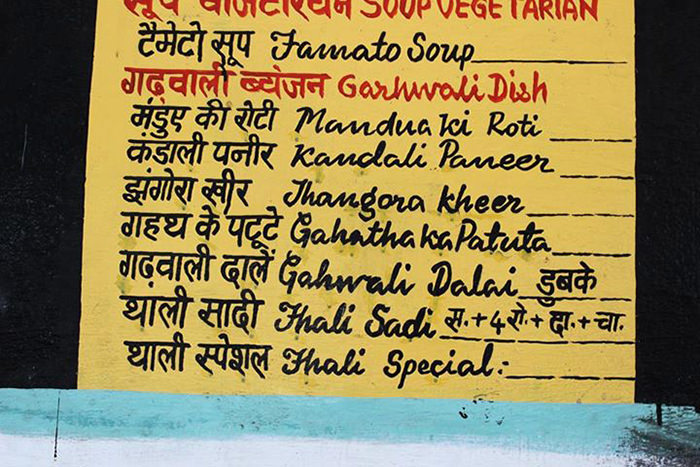 सूप वेजिटेरियन SOUP VEGETARIAN
टैमेटो सूप Tamato Soup
गढ़वाली ब्यंजन Garhwali Dish
मंडुए की रोटी Mandua ki Roti
कंडाली पनीर Kandali Paneer
झंगोरा खीर Jhangora kheer
गहथ के पटूटे Gahatha ka Patuta
गढ़वाली दालें Gahwali Dalai डुबके
थाली सादी Thali Sadi स.+4रो+दा.+चा.
थाली स्पेशल Thali Special:-